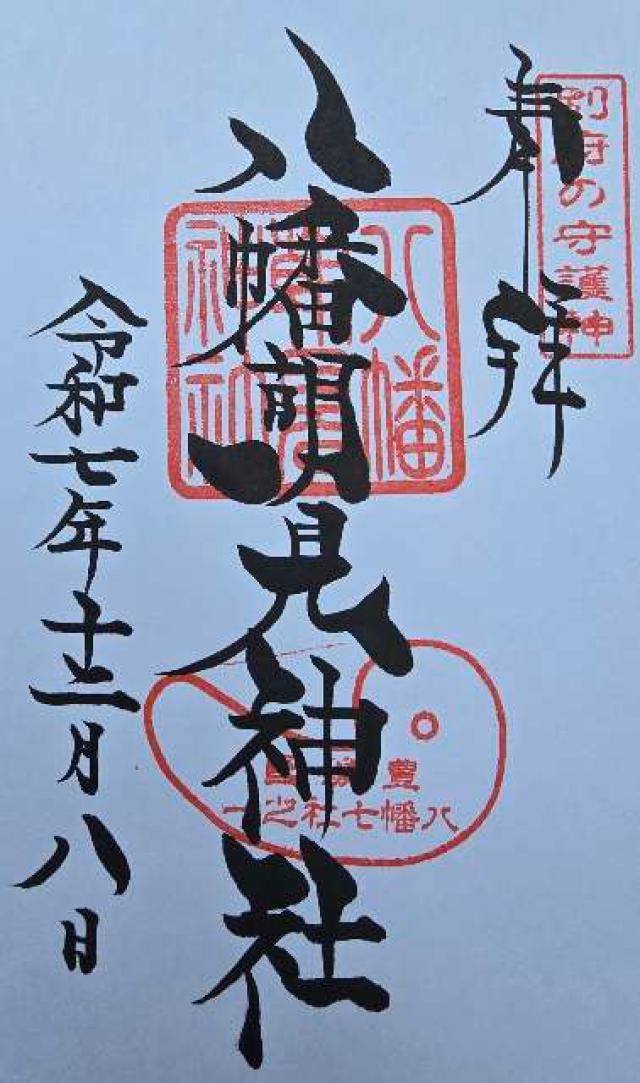 別府の守護神
奉拝
八幡朝見神社
八幡朝見神社
豊後国
八幡七社之一
令和七年十二月八日